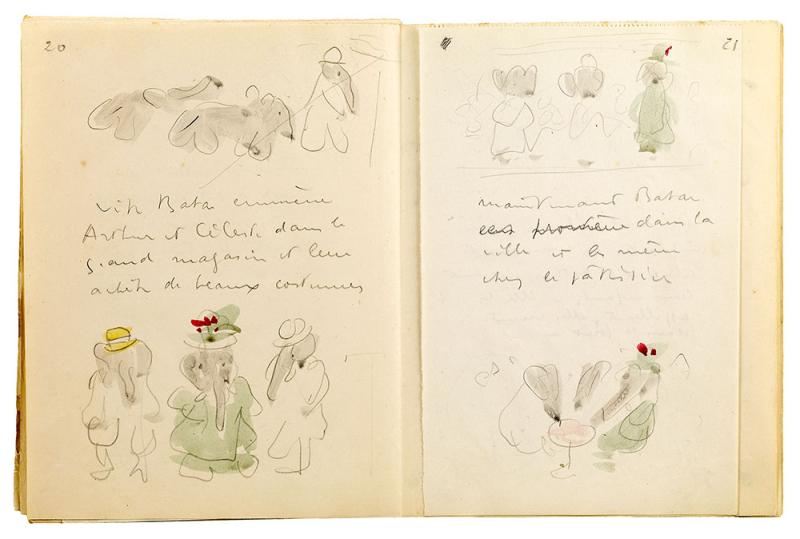 20
vite Babar emmène
Arthur et Céleste dans le
grand magasin et leur
achète de beaux costumes
21
maintenant Babar
les promène dans la
ville et les mène
chez le pâtissier